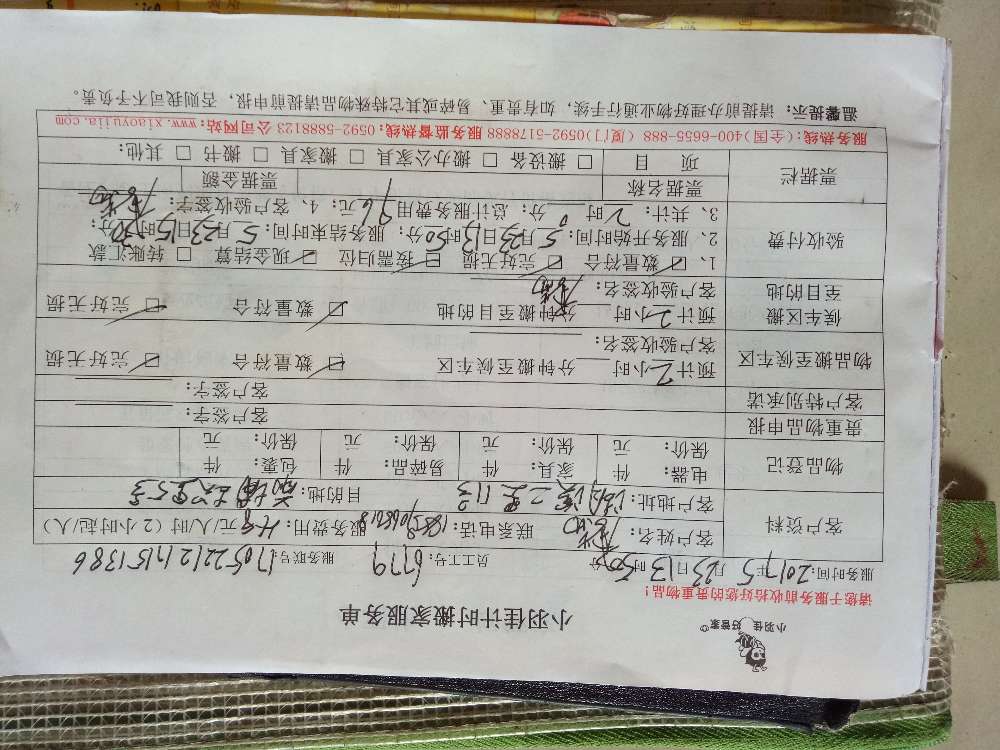 小羽佳 好管家
小羽佳计时搬家服务单
请您于服务前收拾好您的贵重物品!
服务时间:2017年5月23日13时50分 员工工号:6779 服务联号:
客户资料 客户姓名: 联系电话: 服务费用: 元/人/时(2小时起/人)
客户地址: 目的地:
物品登记 电器: 件 家具: 件 易碎品: 件 包裹: 件
保价: 元 保价: 元 保价: 元 保价: 元
贵重物品申报 客户签字:
客户特别承诺 客户签字:
物品搬至候车区 预计2小时 分钟搬至候车区 数量符合 完好无损
客户验收签名:
候车区搬至目的地 预计2小时 分钟搬至目的地 数量符合 完好无损
客户验收签名:
验收付费 1、数量符合 完好无损 按需归位 现金结算 转账汇款
2、服务开始时间:5月23日13时50分; 服务结束时间:5月23日15时50分;
3、共计:2时0分; 总计服务费用 96元; 4、客户验收签字:
票据栏 票据名称 票据金额
项目 搬设备 搬办公家具 搬家具 搬书 其他:
服务热线:(全国)400-6655-888 (厦门)0592-5178888 服务监督热线:0592-5888123 公司网站:www.xiaoyujia.com
温馨提示:请提前办理好物业通行手续,如有贵重、易碎或其它特殊物品请提前申报,否则我司不予负责。